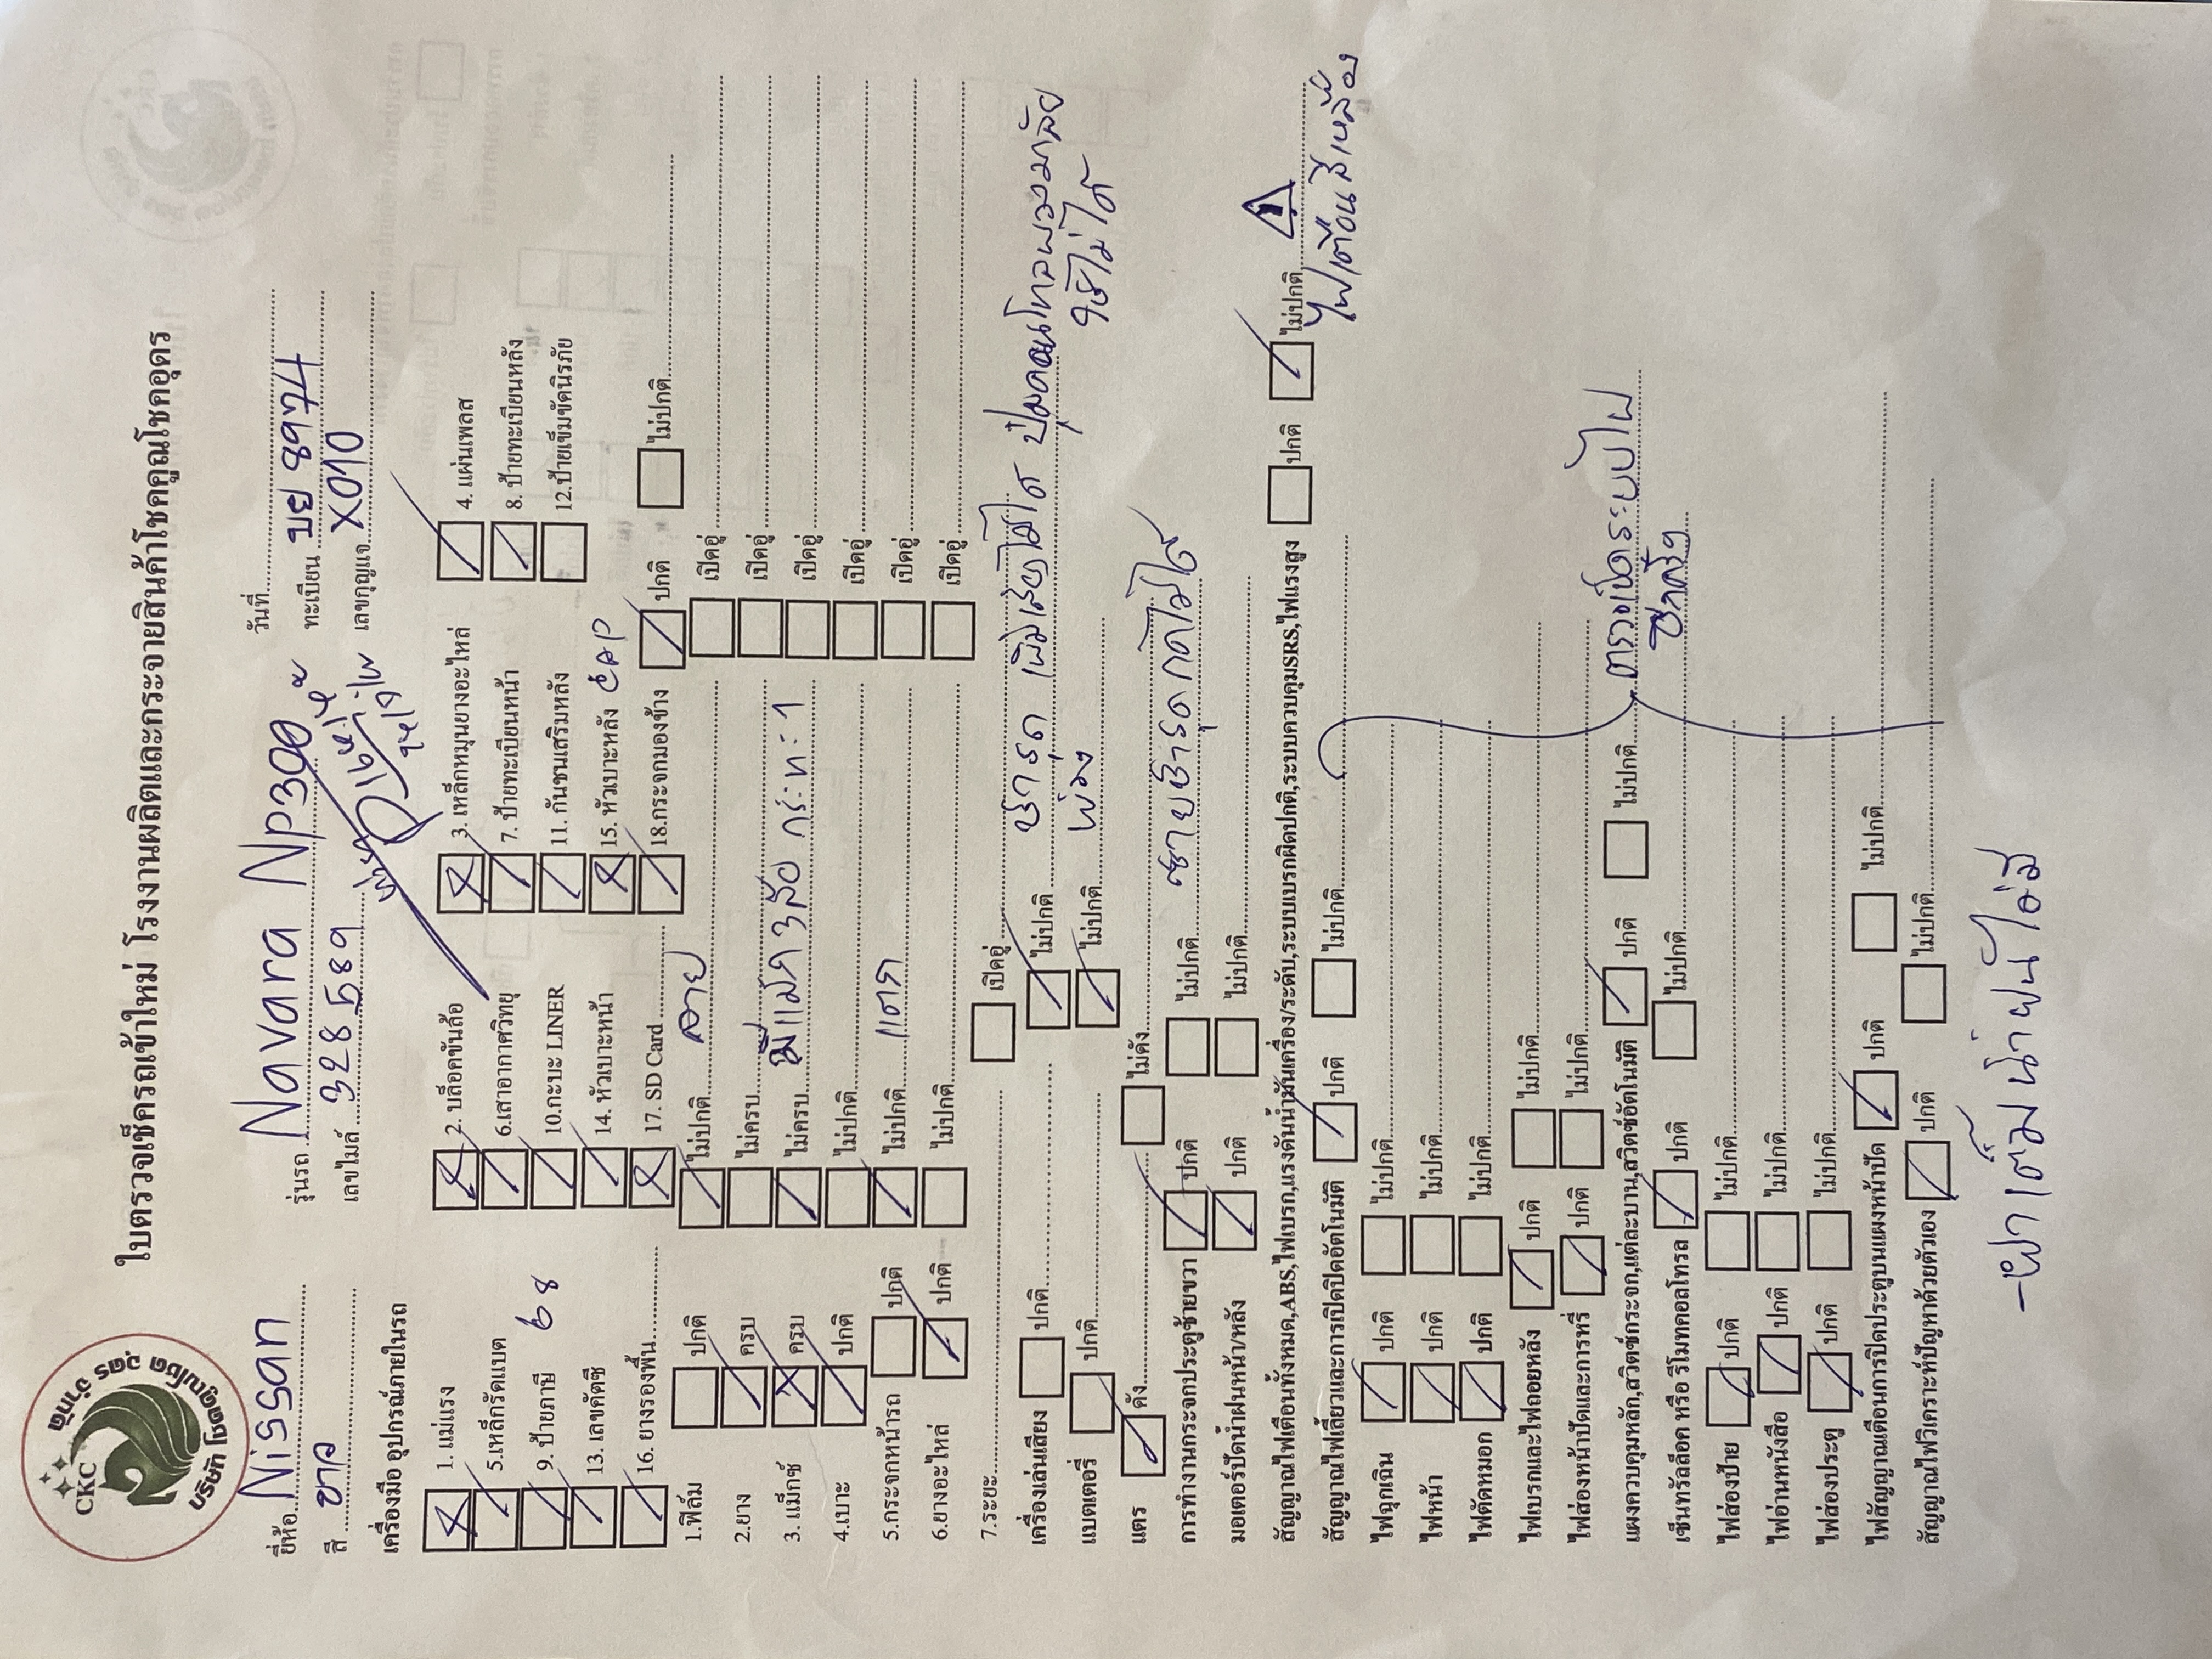 CKC
บริษัท โชคคูณโชค อุดร จำกัด
ใบตรวจเช็ครถเข้าใหม่ โรงงานผลิตและกระจายสินค้าโชคคูณโชคอุดร
ยี่ห้อ Nissan รุ่นรถ Navara NP300 วันที่
สี ขาว เลขไมล์ 328589 ทะเบียน บย 8974
เลขกุญแจ X010
เครื่องมือ อุปกรณ์ภายในรถ
1. แม่แรง 2. บล็อคขันล้อ 3. เหล็กหมุนยางอะไหล่ 4. แผ่นเพลส
5.เหล็กรัดแบต 6.เสาอากาศวิทยุ 7. ป้ายทะเบียนหน้า 8. ป้ายทะเบียนหลัง
9. ป้ายภาษี 68 10.กระบะ LINER 11. กันชนเสริมหลัง 12.ป้ายเข็มขัดนิรภัย
13. เลขคัตซี 14. หัวเบาะหน้า 15. หัวเบาะหลัง CAP
16. ยางรองพื้น 17. SD Card 18.กระจกมองข้าง ปกติ ไม่ปกติ
1.ฟิล์ม ปกติ ไม่ปกติ ลาย เปิดอู่
2.ยาง ครบ ไม่ครบ เปิดอู่
3. แม็กซ์ ครบ ไม่ครบ มีแม็ก 3 ล้อ กระทะ 1 เปิดอู่
4.เบาะ ปกติ ไม่ปกติ เปิดอู่
5.กระจกหน้ารถ ปกติ ไม่ปกติ แตก เปิดอู่
6.ยางอะไหล่ ปกติ ไม่ปกติ เปิดอู่
7.ระยะ เปิดอู่
เครื่องเล่นเสียง ปกติ ไม่ปกติ ชำรุด เพิ่มเสียงไม่ได้ ปุ่มคอนโทลพวงมาลัย
ใช้ไม่ได้
แบตเตอรี่ ปกติ ไม่ปกติ พ่วง
แตร ดัง ไม่ดัง
การทำงานกระจกประตูซ้ายขวา ปกติ ไม่ปกติ ซ้ายชำรุดกดไม่ได้
มอเตอร์ปัดน้ำฝนหน้า/หลัง ปกติ ไม่ปกติ
สัญญาณไฟเตือนทั้งหมด,ABS,ไฟเบรก,แรงดันน้ำมันเครื่อง/ระดับ,ระบบเบรกผิดปกติ,ระบบควบคุมSRS,ไฟแรงสูง ปกติ ไม่ปกติ
ไฟเตือนสีเหลือง
สัญญาณไฟเลี้ยวและการเปิดปิดอัตโนมัติ ปกติ ไม่ปกติ
ไฟฉุกเฉิน ปกติ ไม่ปกติ
ไฟหน้า ปกติ ไม่ปกติ
ไฟตัดหมอก ปกติ ไม่ปกติ
ไฟเบรกและไฟถอยหลัง ปกติ ไม่ปกติ
ไฟส่องหน้าปัดและการหรี่ ปกติ ไม่ปกติ
แผงควบคุมหลัก,สวิตช์กระจก,แต่ละบาน,สวิตช์อัตโนมัติ ปกติ ไม่ปกติ ตรวจเช็คระบบไฟ
ซีกครั้ง
เซ็นทรัลล็อค หรือ รีโมทคอลโทรล ปกติ ไม่ปกติ
ไฟส่องป้าย ปกติ ไม่ปกติ
ไฟอ่านหนังสือ ปกติ ไม่ปกติ
ไฟส่องประตู ปกติ ไม่ปกติ
ไฟสัญญาณเตือนการปิดประตูบนแผงหน้าปัด ปกติ ไม่ปกติ
สัญญาณไฟวิเคราะห์ปัญหาด้วยตัวเอง ปกติ ไม่ปกติ
-ฝาเติมน้ำฝนไม่มี